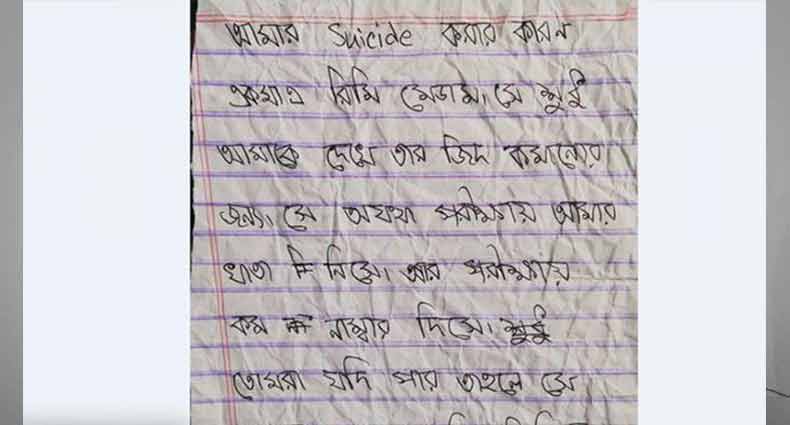 আমার Suicide করার কারন
একমাত্র রিমি মেডাম, সে শুধু
আমাকে দেখে তার জিদ কমানোর
জন্য, সে অযথা পরীক্ষায় আমার
খাতা নিসে, আর পরীক্ষায়
কম নাম্বার দিসে।
তোমরা যদি পার তাহলে সে